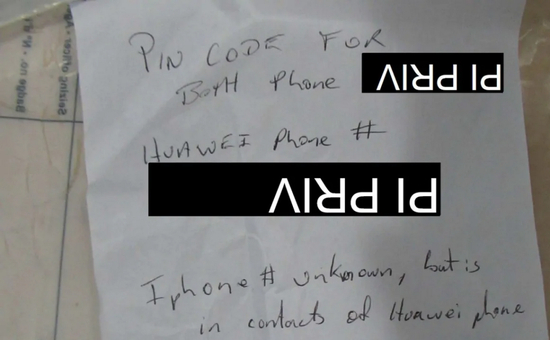 PIN CODE FOR
BOTH Phone PI PRIV
HUAWEI Phone #
PI PRIV
Iphone # unknown, but is
in contacts of Huawei phone
Badge no. • N°
Seizing officer •